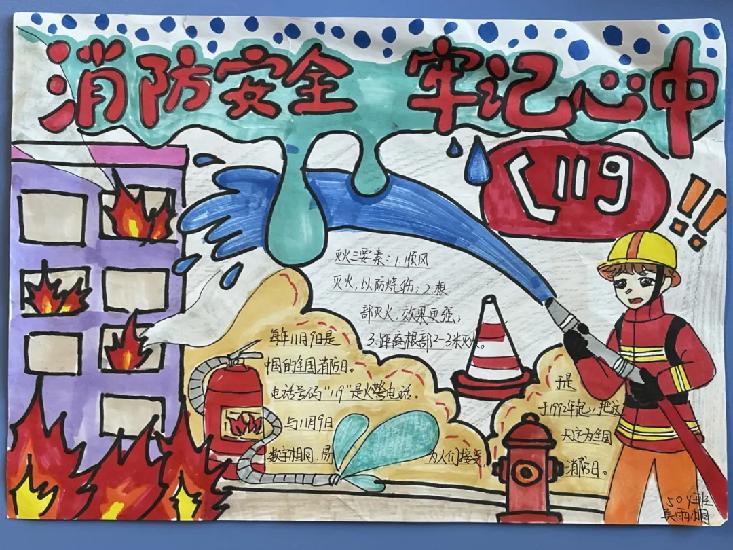 消防安全 牢记心中
119
!!
灭火三要素:1.顺风
灭火,以防烧伤;2.想
部灭火,效果更强,
3.距离根部2-3米灭火。
每年11月9日是
中国的全国消防日。
电话号码"119"是火警电话,
与11月9日
数字相同,易
为人们接受
于是
十1992年起,把这
天定为全国
消防日。
504班